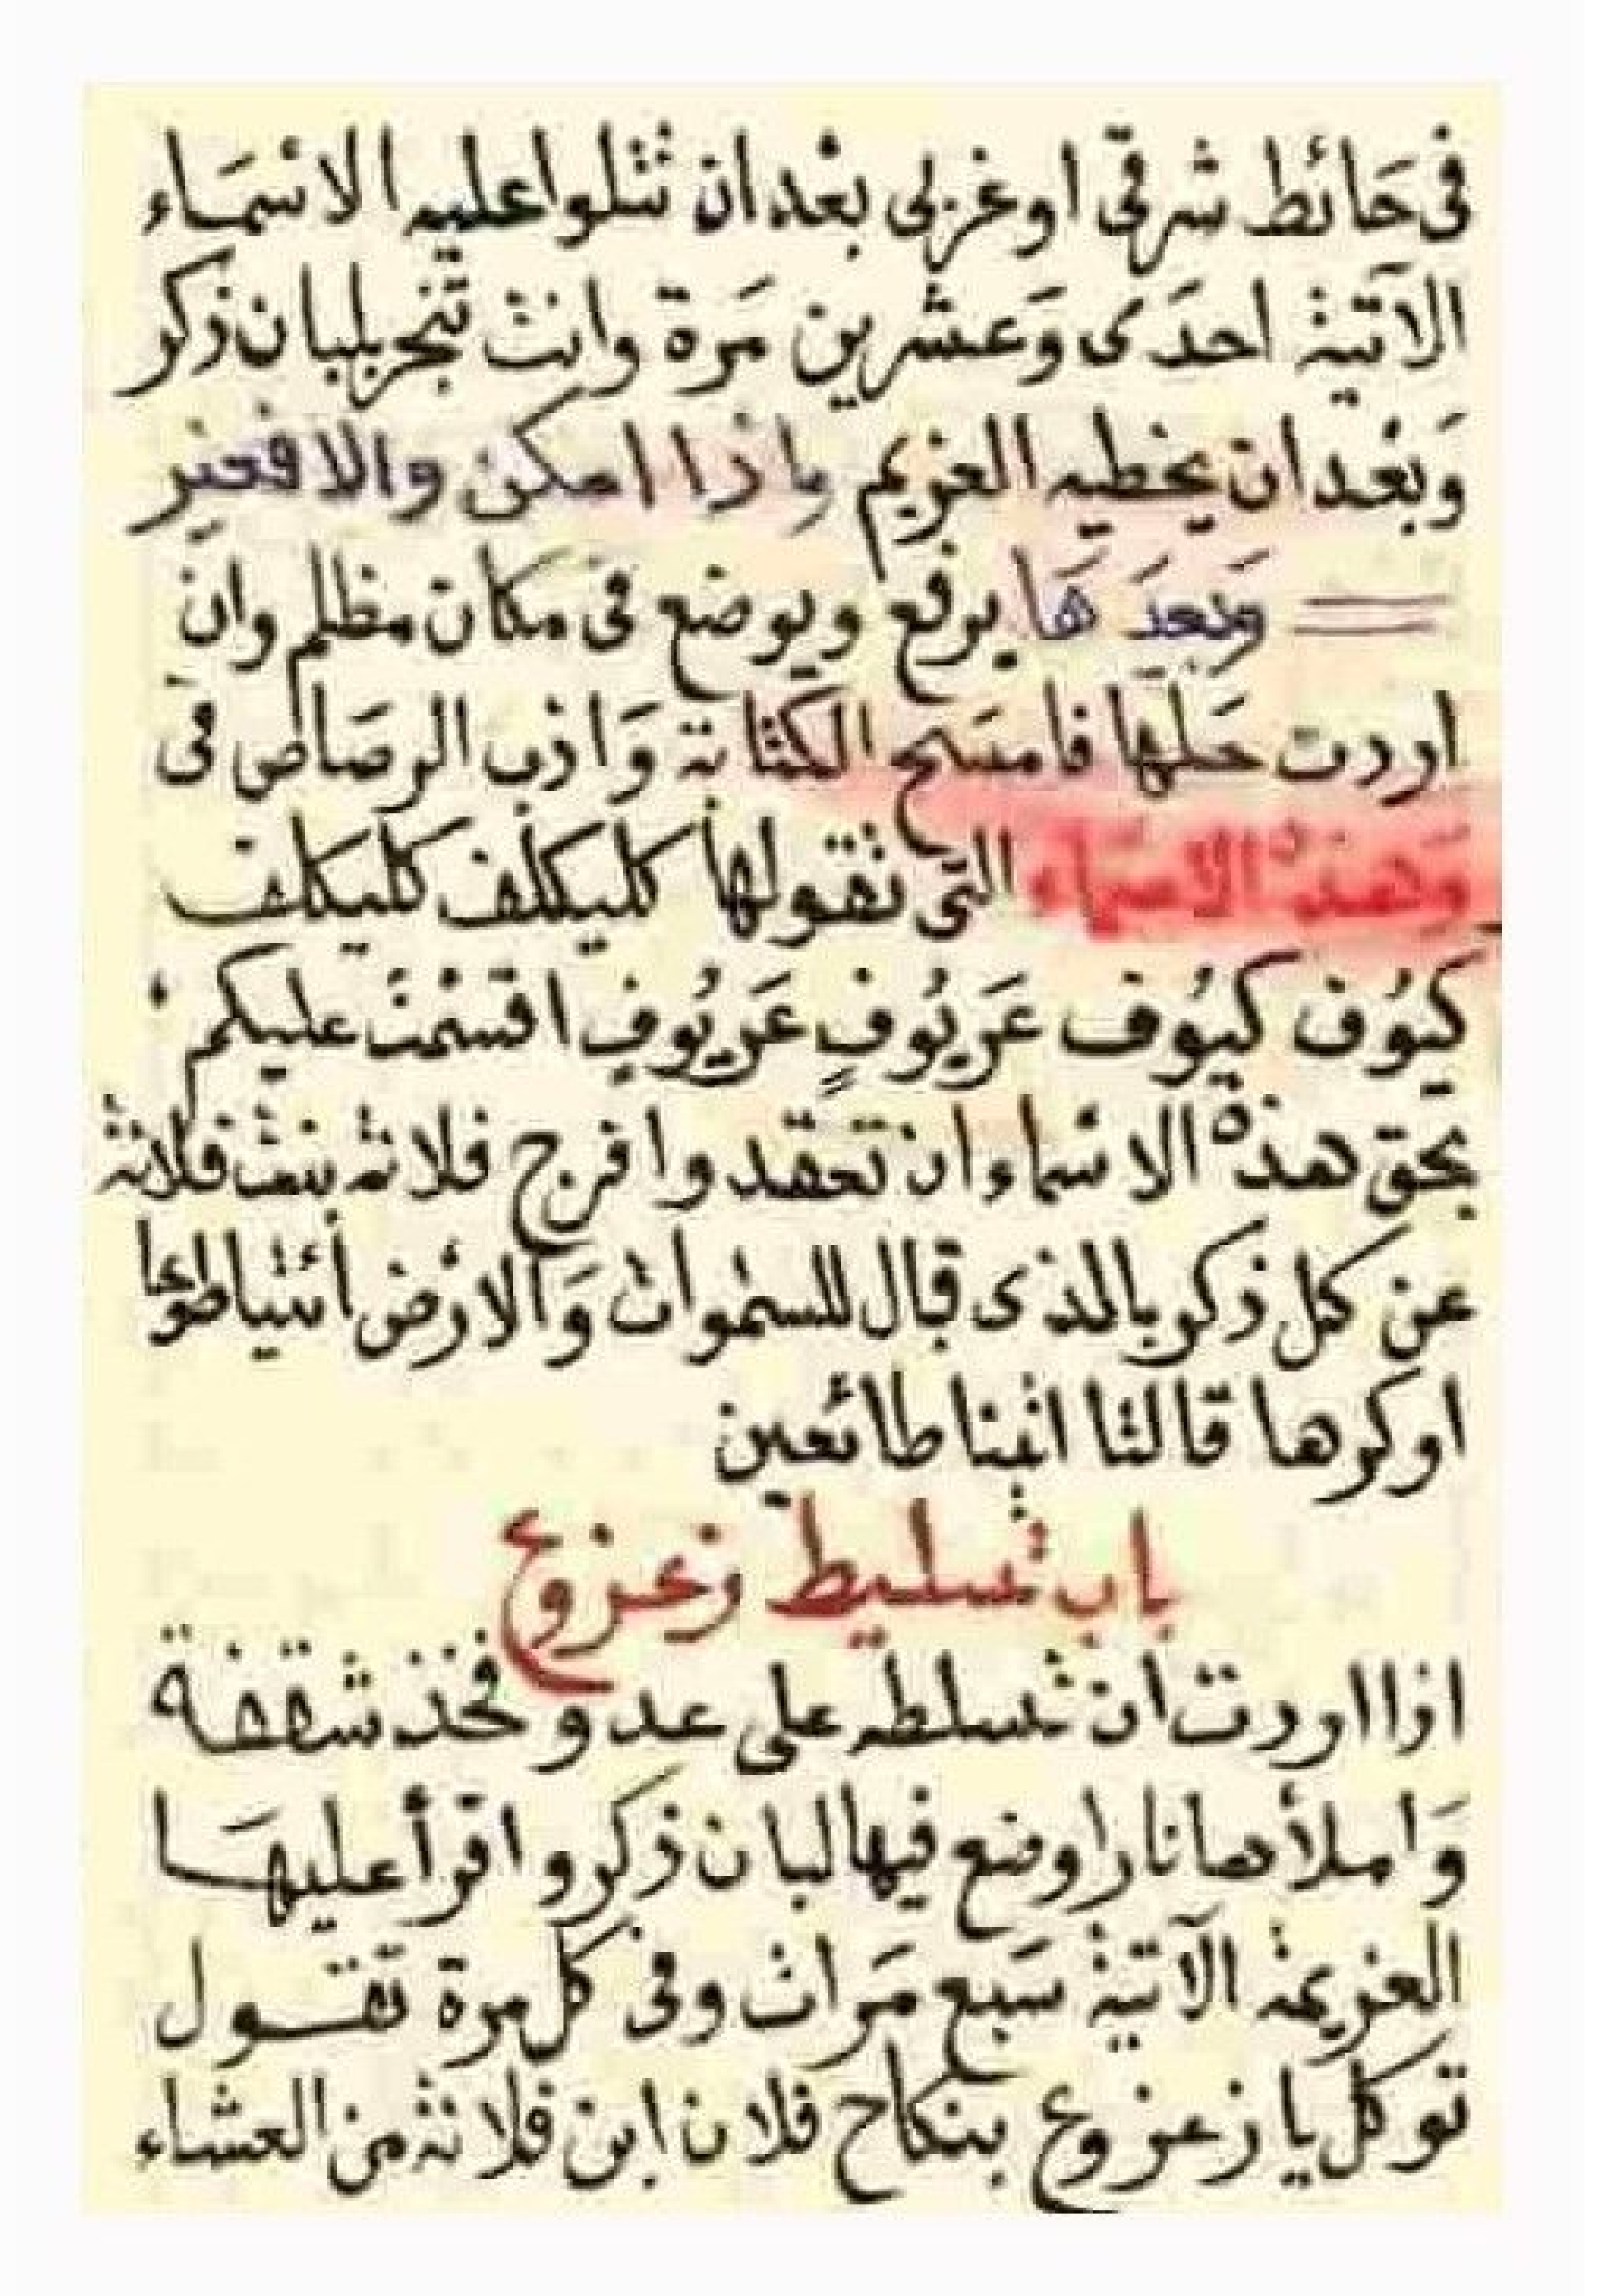 في حائط شرقي او غربي بعد ان تتلوا عليه الاسماء
الآتية احدى وعشرين مرة وانت تبخر بلبان ذكر
وبعد ان يخطيه الغريم اذا امكن والا فغير
وبعدها يرفع ويوضع في مكان مظلم وان
اردت حلها فامسح الكتابة واذب الرصاص في
وهذه الاسماء التي تقولها كليكلف كليكلف
كيوف كيوف عريوف عريوف اقسمت عليكم
بحق هذه الاسماء ان تعقدوا فرج فلانه بنت فلانة
عن كل ذكر بالذي قال للسموات والارض أئتيا طوعا
او كرها قالتا اتينا طائعين
باب تسليط زعزوع
اذا اردت ان تسلطه على عدو فخذ شقفة
وامـلأها نارا وضع فيها لبان ذكر واقرأ عليها
العزيمة الآتية سبع مرات وفي كل مرة تقـول
توكل يا زعزوع بنكاح فلان ابن فلانة من العشاء